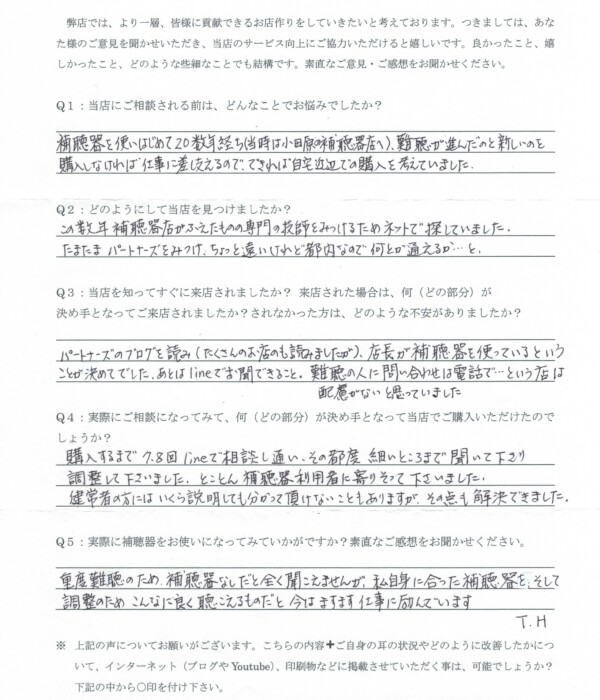 弊店では、より一層、皆様に貢献できるお店作りをしていきたいと考えております。つきましては、あな
た様のご意見を聞かせいただき、当店のサービス向上にご協力いただけると嬉しいです。良かったこと、嬉
しかったこと、どのような些細なことでも結構です。素直なご意見・ご感想をお聞かせください。
Q１：当店にご相談される前は、どんなことでお悩みでしたか？
補聴器を使いはじめて20数年経ち(当時は小田原の補聴器店へ)、難聴が進んだのと新しいのを
購入しなければ仕事に差し支えるので、できれば自宅近辺での購入を考えていました。
Q２：どのようにして当店を見つけましたか？
この数年補聴器店がふえたものの専門の技師をみつけるためネットで探していました。
たまたまパートナーズをみつけ、ちょっと遠いけれど都内なので何とか通えるか…と。
Q３：当店を知ってすぐに来店されましたか？ 来店された場合は、何（どの部分）が
決め手となってご来店されましたか？されなかった方は、どのような不安がありましたか？
パートナーズのブログを読み(たくさんのお店のも読みましたが)、店長が補聴器を使っているという
ことが決めてでした。あとはlineでお聞できること。難聴の人に問い合わせは電話で…という店は
配慮がないと思っていました
Q４：実際にご相談になってみて、何（どの部分）が決め手となって当店でご購入いただけたので
しょうか？
購入するまで7.8回lineで相談し通い、その都度細いところまで聞いて下さり
調整して下さいました。とことん補聴器利用者に寄りそって下さいました。
健常者の方にはいくら説明しても分かって頂けないこともありますが、その点も解決できました。
Q５：実際に補聴器をお使いになってみていかがですか？素直なご感想をお聞かせください。
重度難聴のため、補聴器なしだと全く聞こえませんが、私自身に合った補聴器を、そして
調整のためこんなに良く聴こえるものだと今はますます仕事に励んでいます
T.H
※ 上記の声についてお願いがございます。こちらの内容＋ご自身の耳の状況やどのように改善したかにつ
いて、インターネット（ブログや Youtube）、印刷物などに掲載させていただく事は、可能でしょうか？
下記の中から○印を付け下さい。